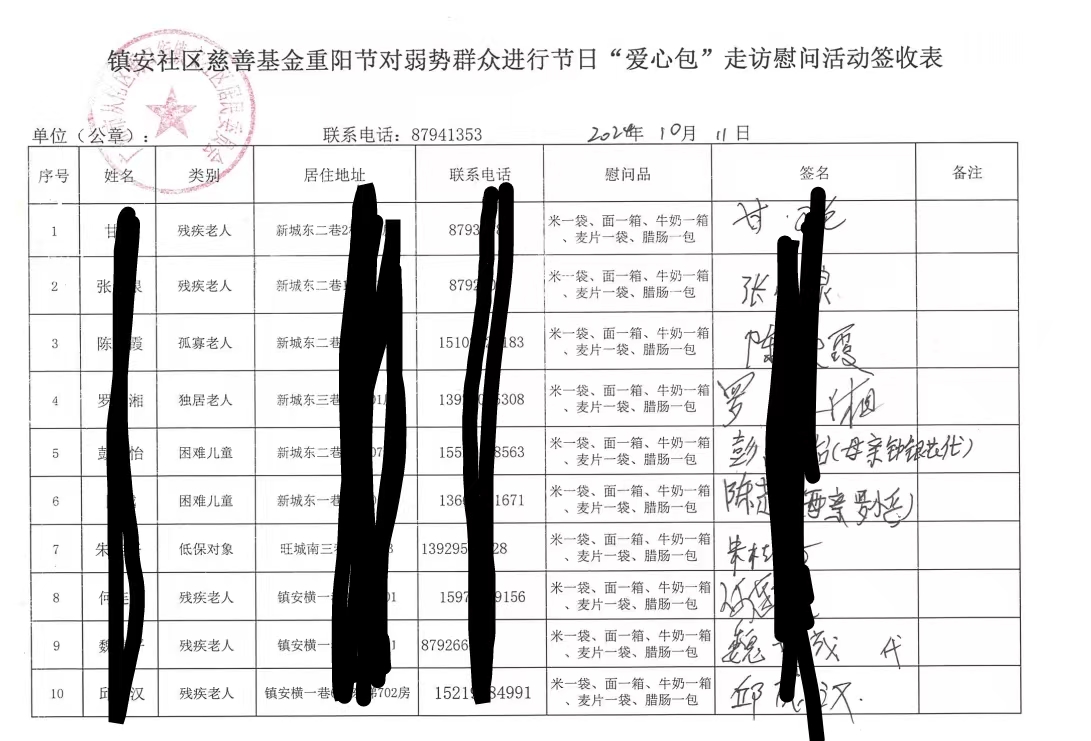 镇安社区慈善基金重阳节对弱势群众进行节日“爱心包”走访慰问活动签收表
单位（公章）： 联系电话：87941353 2024年 10月 11日
序号 姓名 类别 居住地址 联系电话 慰问品 签名 备注
1 甘 残疾老人 新城东二巷2 8793 米一袋、面一箱、牛奶一箱 甘
、麦片一袋、腊肠一包
2 张 泉 残疾老人 新城东二巷 8792 米一袋、面一箱、牛奶一箱 张 泉
、麦片一袋、腊肠一包
3 陈 霞 孤寡老人 新城东二巷 1510 183 米一袋、面一箱、牛奶一箱 陈 霞
、麦片一袋、腊肠一包
4 罗 湘 独居老人 新城东三巷 01 139 5308 米一袋、面一箱、牛奶一箱 罗 湘
、麦片一袋、腊肠一包
5 彭 怡 困难儿童 新城东二巷 07 155 8563 米一袋、面一箱、牛奶一箱 彭 怡(母亲钟银花代)
、麦片一袋、腊肠一包
6 困难儿童 新城东一巷 136 1671 米一袋、面一箱、牛奶一箱 陈
、麦片一袋、腊肠一包
7 朱 低保对象 旺城南三巷 3 13929 28 米一袋、面一箱、牛奶一箱 朱
、麦片一袋、腊肠一包
8 何 残疾老人 镇安横一巷 01 1597 9156 米一袋、面一箱、牛奶一箱 何
、麦片一袋、腊肠一包
9 魏 残疾老人 镇安横一巷 879266 米一袋、面一箱、牛奶一箱 魏 代
、麦片一袋、腊肠一包
10 邱 汉 残疾老人 镇安横一巷 702房 15219 84991 米一袋、面一箱、牛奶一箱 邱 汉
、麦片一袋、腊肠一包